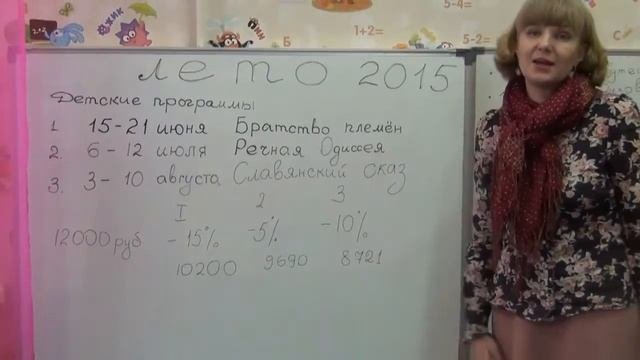 ЁЖИК
ИН
Б
1+2=
5-4=
5-2=
С
лето 2015
Детские программы
1. 15-21 июня Братство племён
2. 6-12 июля Речная Одиссея
3. 3-10 августа Славянский сказ
I 2 3
12000 руб -15% -5% -10%
10200 9690 8721